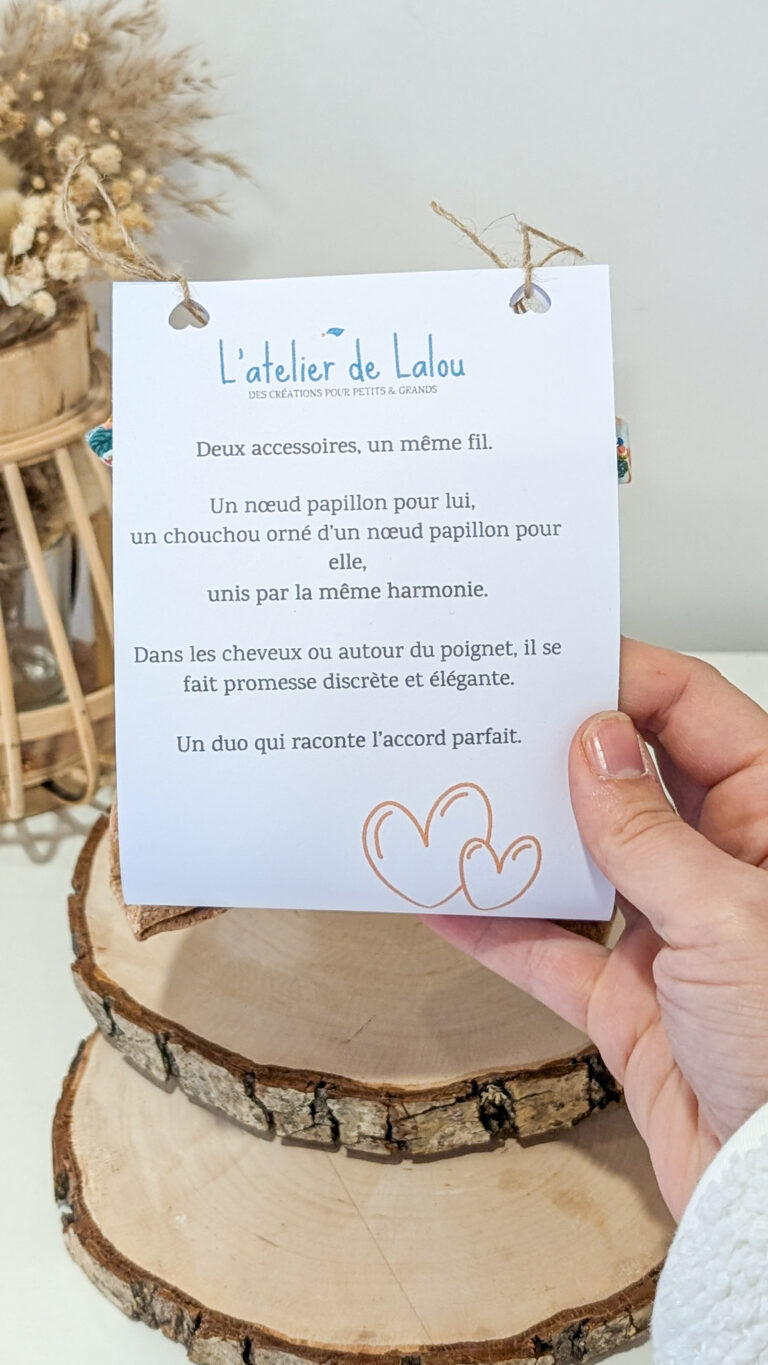 L'atelier de Lalou
DES CRÉATIONS POUR PETITS & GRANDS
Deux accessoires, un même fil.
Un nœud papillon pour lui,
un chouchou orné d'un nœud papillon pour
elle,
unis par la même harmonie.
Dans les cheveux ou autour du poignet, il se
fait promesse discrète et élégante.
Un duo qui raconte l'accord parfait.